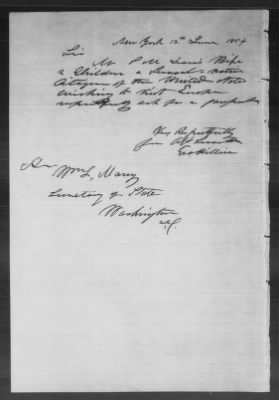 New York 12th June 1854
Sir
Mr S M Wife
& Children & Servant native
Citizens of the United States
wishing to visit Europe
respectfully ask for a passport
Very Respectfully
Your Obt Servant
Hon
Wm L. Marcy
Secretary of State
Washington
D.C.